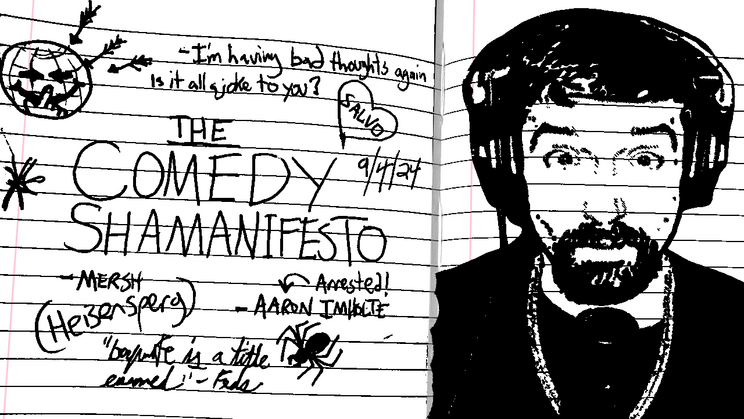 - I'm having bad thoughts again
Is it all a joke to you?
SALVO
THE
COMEDY
9/4/24
SHAMANIFESTO
- MERSH
(Heisensperg)
Arrested!
- AARON IMHOLTE
is a title
earned" - Feds